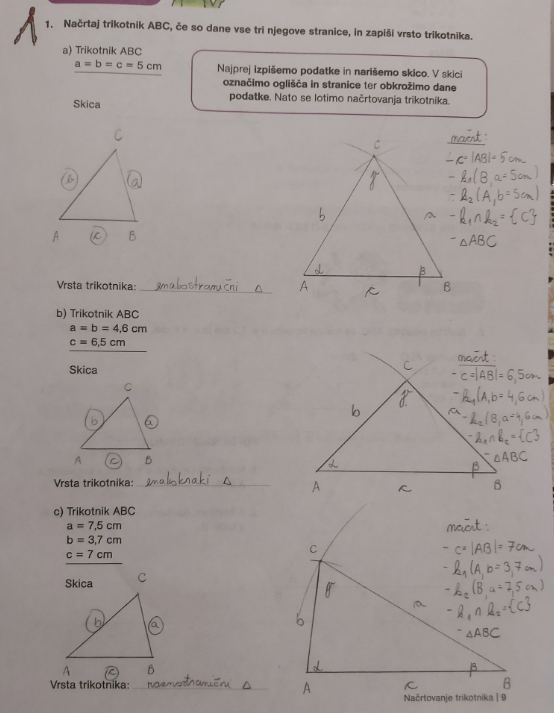 1. Načrtaj trikotnik ABC, če so dane vse tri njegove stranice, in zapiši vrsto trikotnika.
a) Trikotnik ABC
a = b = c = 5 cm
Najprej izpišemo podatke in narišemo skico. V skici
označimo oglišča in stranice ter obkrožimo dane
podatke. Nato se lotimo načrtovanja trikotnika.
Skica
C
b
a
A
c
B
C
γ
b
a
α
β
A
c
B
načrt:
- c = |AB| = 5 cm
- k₁ (B, a = 5cm)
- k₂ (A, b = 5cm)
- k₁ ∩ k₂ = {C}
- △ABC
Vrsta trikotnika: enakostranični △
b) Trikotnik ABC
a = b = 4,6 cm
c = 6,5 cm
Skica
C
b
a
A
c
B
C
γ
b
a
α
β
A
c
B
načrt:
- c = |AB| = 6,5cm
- k₁ (A, b = 4,6 cm)
- k₂ (B, a = 4,6 cm)
- k₁ ∩ k₂ = {C}
- △ABC
Vrsta trikotnika: enakokraki △
c) Trikotnik ABC
a = 7,5 cm
b = 3,7 cm
c = 7 cm
Skica
C
b
a
A
c
B
C
γ
b
a
α
β
A
c
B
načrt:
- c = |AB| = 7cm
- k₁ (A, b = 3,7 cm)
- k₂ (B, a = 7,5 cm)
- k₁ ∩ k₂ = {C}
- △ABC
Vrsta trikotnika: raznostranični △
Načrtovanje trikotnika | 9